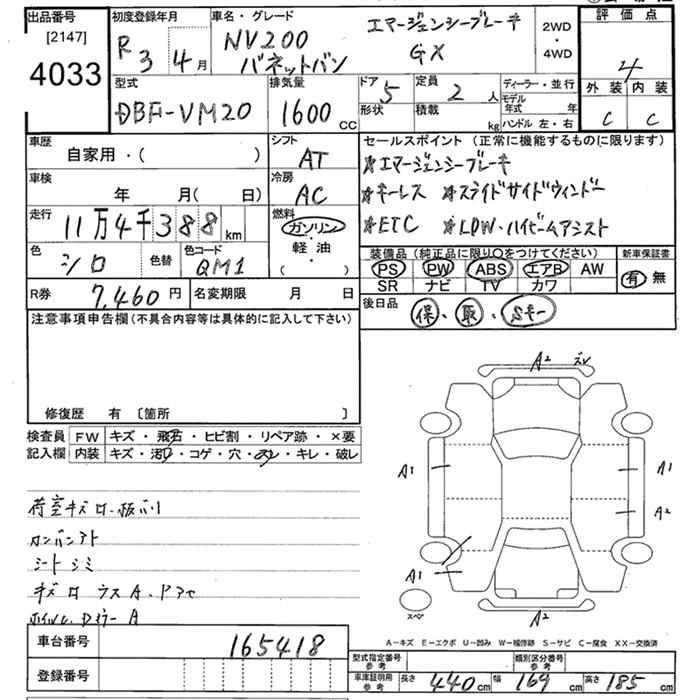 出品番号 初度登録年月 車名・グレード 評価点
[2147]
4033
R3 4月 NV200 エマージェンシーブレーキ 2WD・4WD 4
バネットバン GX
型式 排気量 ドア 定員 ディーラー・並行 外装 内装
DBF-VM20 1600CC 5 2人 モデル年式 年 C C
形状 積載 kg ハンドル 左・右
車歴 シフト セールスポイント(正常に機能するものに限ります)
自家用・( ) AT ★エマージェンシーブレーキ
車検 冷房 ★キーレス ★スライドサイドウィンドー
年 月( 日) AC
走行 燃料 ★ETC ★LDW・ハイビームアシスト
11万4千388km ガソリン
軽・油
・
( )
色 色替 色コード 装備品(純正品に限り○をつけてください) 新車保証書
シロ QM1 PS PW ABS エアB AW 有 無
SR ナビ TV カワ
R券 7,460円 名変期限 月 日 後日品
保、取、Sキー
注意事項申告欄(不具合内容等は具体的に記入して下さい)
修復歴 有 〔箇所 〕
検査員 FW キズ・飛石・ヒビ割・リペア跡・×要
記入欄 内装 キズ・汚レ・コゲ・穴・スレ・キレ・破レ
A2
A1 A1
A2
A1
スペア A2
シートシミ
A-キズ E-エクボ U-凹み W-補修跡 S-サビ C-腐食 XX-交換済
車台番号 165418
登録番号
型式指定番号 参考 類別区分番号 参考
車庫証明用 参考 長さ 440cm 幅 169cm 高さ 185cm